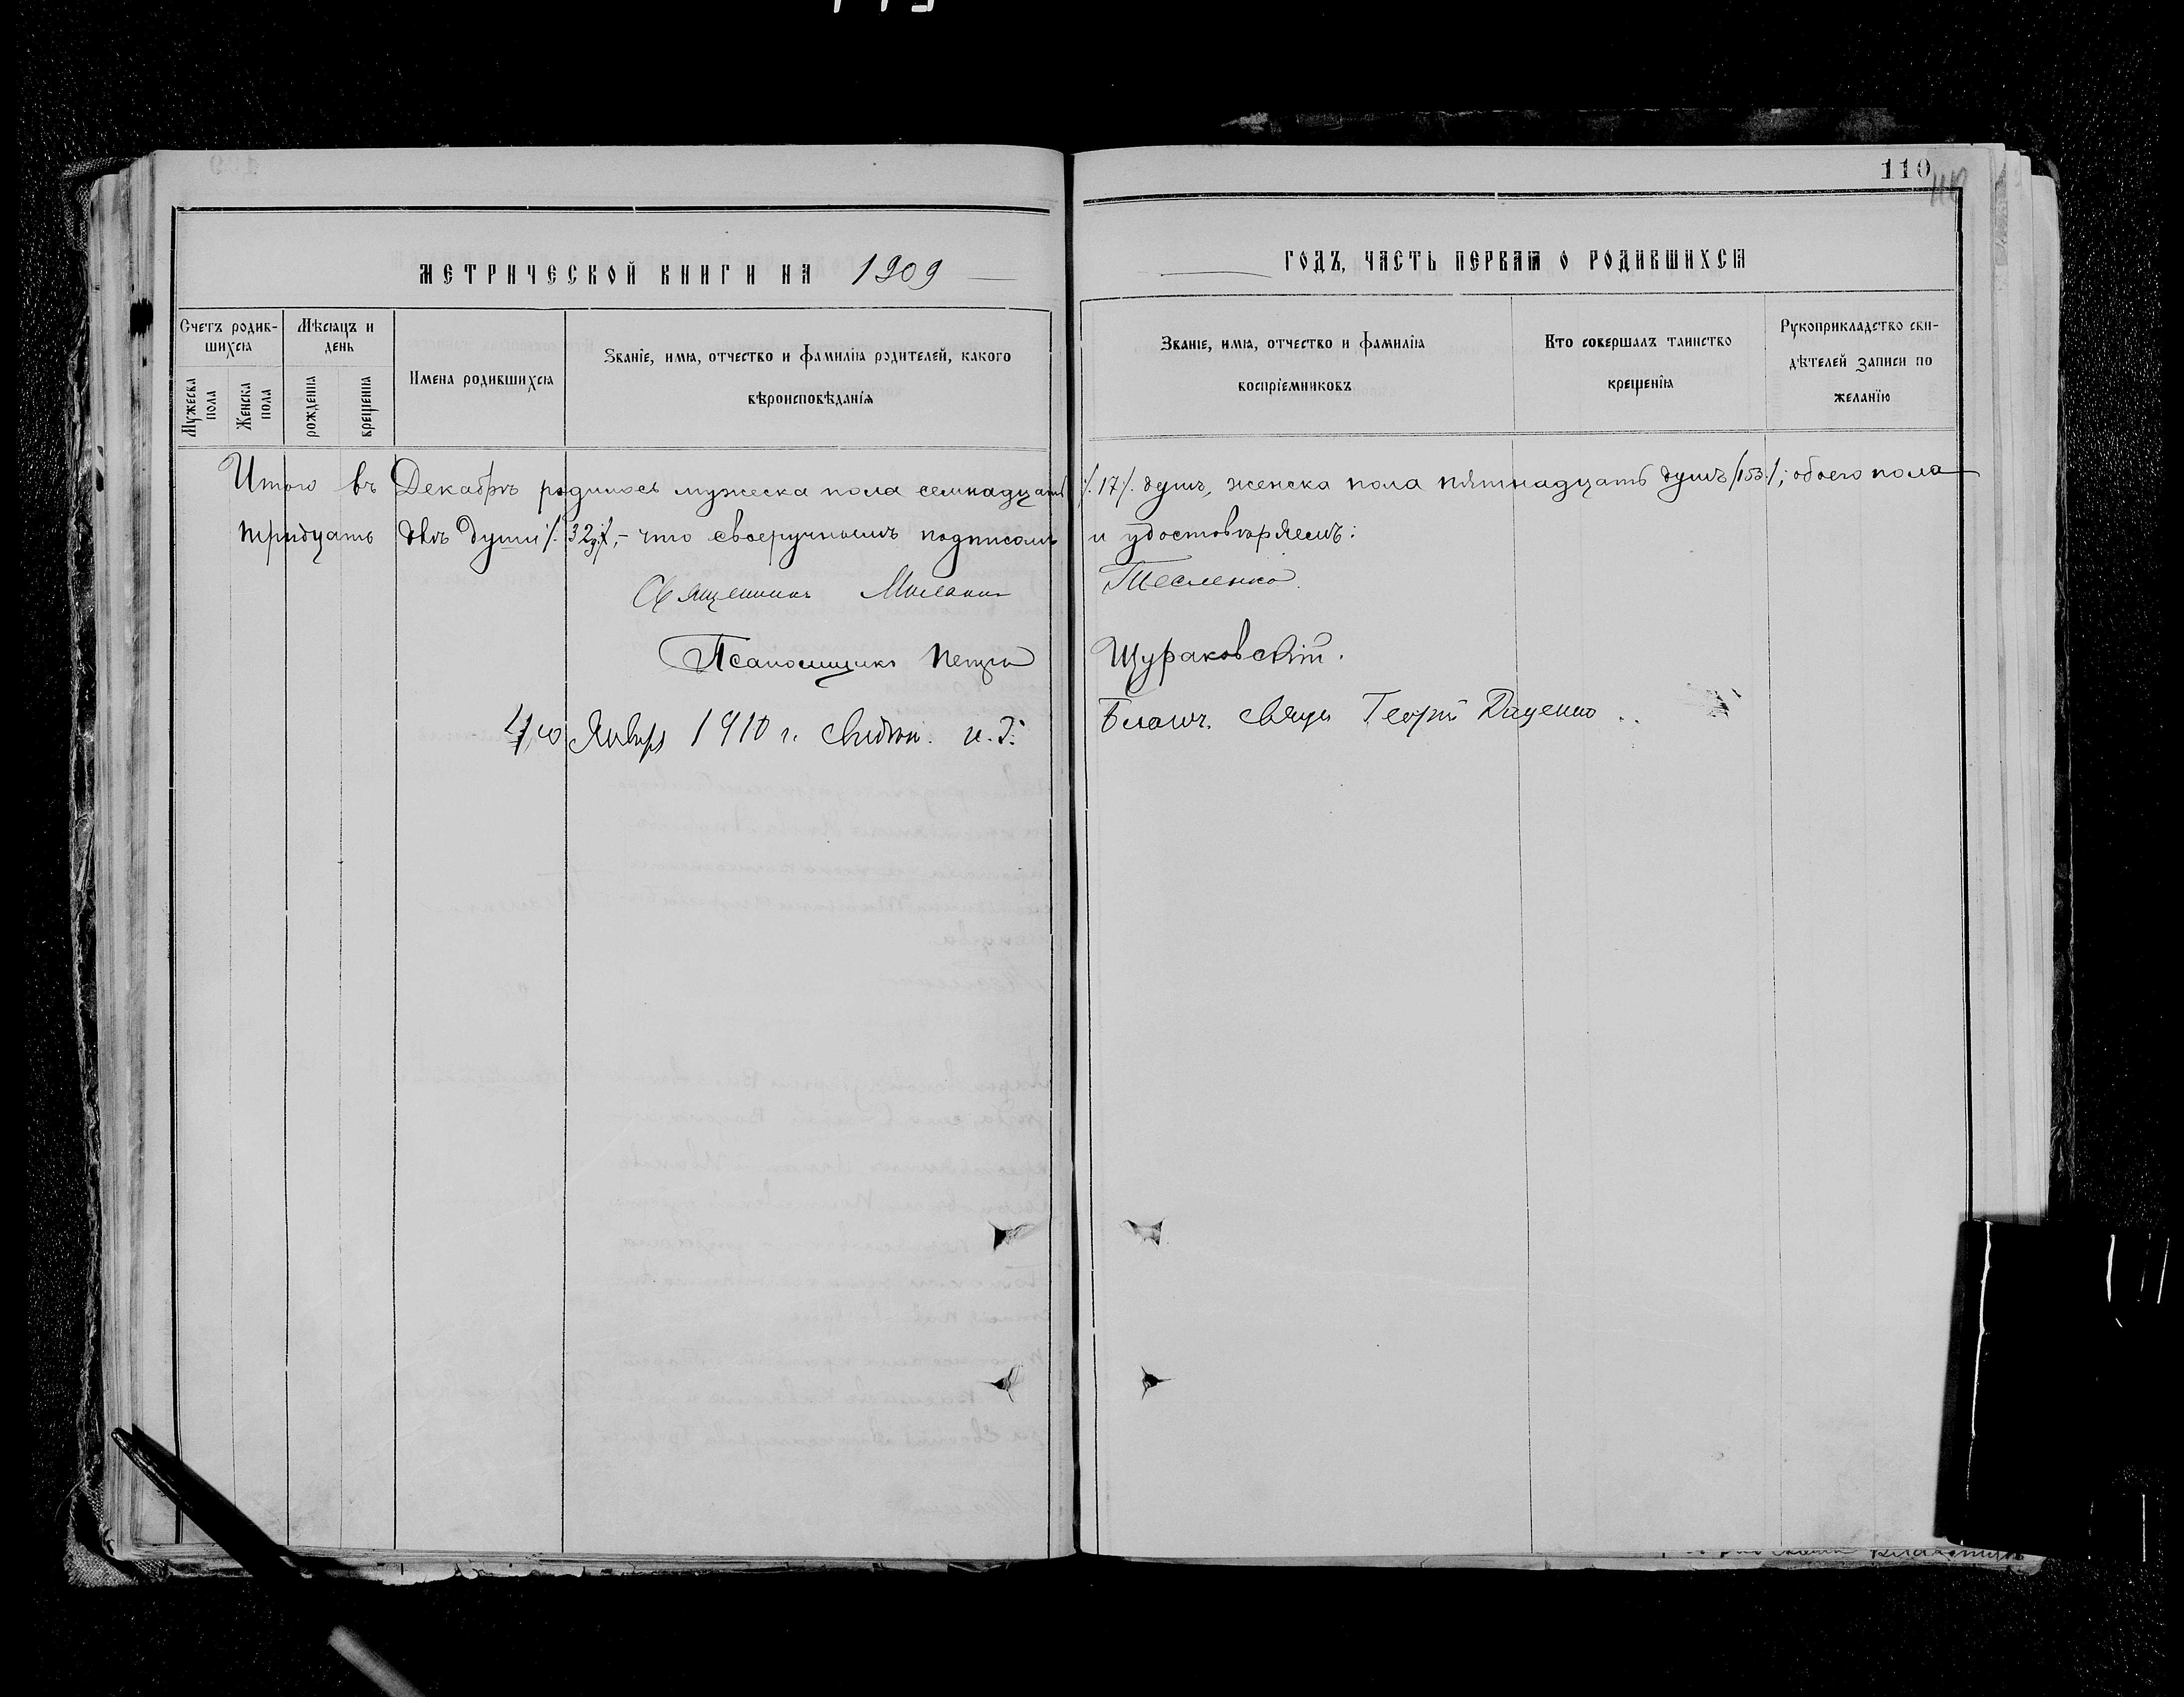 110
110
МЕТРИЧЕСКОЙ КНИГИ НА 1909
ГОДЪ, ЧАСТЬ ПЕРВАЯ О РОДИВШИХСЯ
Счетъ родив-
шихся
Мѣсяцъ и
день
Мужеска
пола
Женска
пола
рожденія
крещенія
Имена родившихся
Званіе, имя, отчество и фамилія родителей, какого
вѣроисповѣданія
Званіе, имя, отчество и фамилія
воспріемниковъ
Кто совершалъ таинство
крещенія
Рукоприкладство сви-
дѣтелей записи по
желанію
Итого въ Декабрѣ родилось мужеска пола семнадцать /.17/. душъ, женска пола пятнадцать душъ /15/; обоего пола
тридцать двѣ души /.32/,- что своеручнымъ подписомъ и удостовѣряемъ:
Священникъ Тесленко.
Псаломщикъ Петръ Щураковскій.
Январ 1910 г. Благоч. Свящ Георгій Даценко